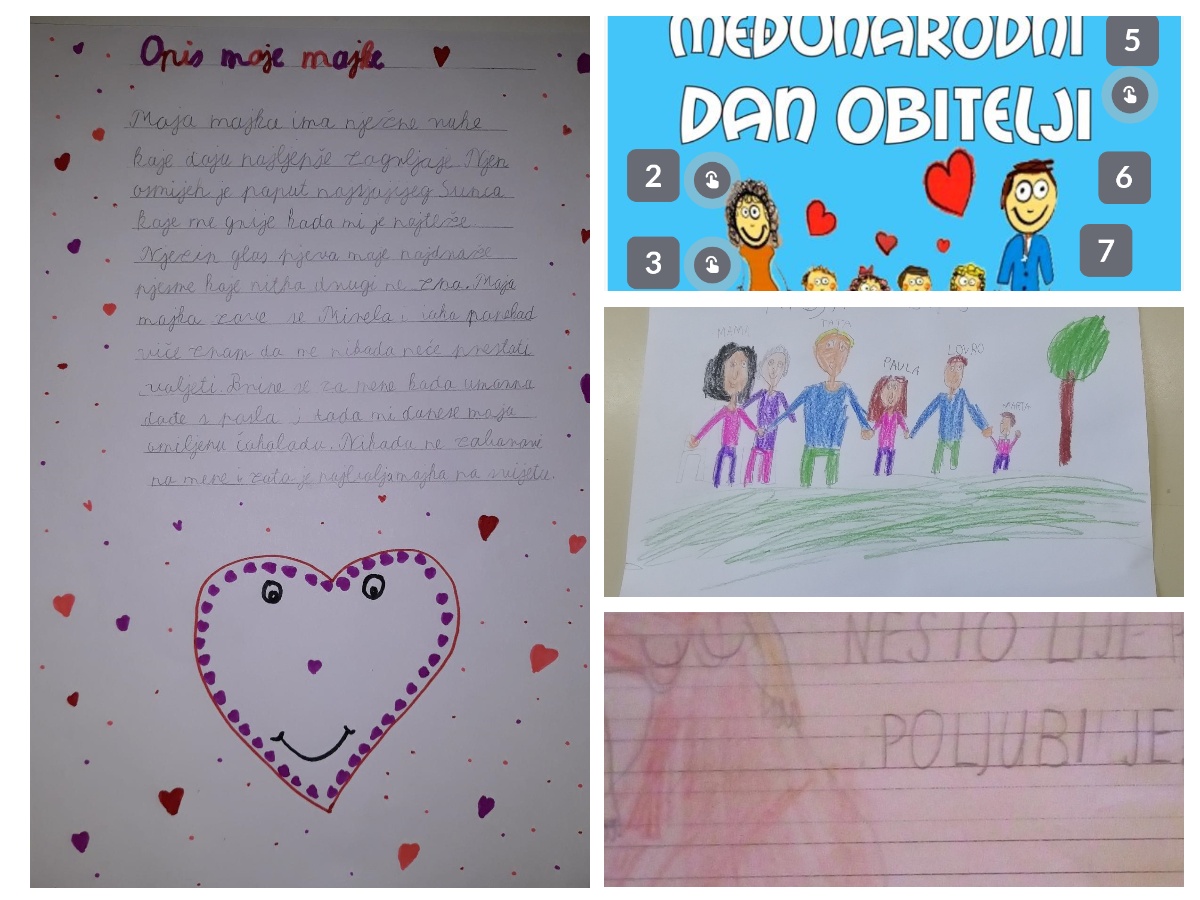 Opis moje majke
Moja majka ima nježne ruke
koje daju najljepše zagrljaje. Njen
osmijeh je poput najsjajnijeg Sunca
koje me grije kada mi je najteže
Njezin glas pjeva moje najdraže
pjesme koje nitko drugi ne zna. Moja
majka zove se Mirela i iako ponekad
viče znam da me nikada neće prestati
voljeti. Brine se za mene kada umorna
dođe s posla i tada mi donese moju
omiljenu čokoladu. Nikada ne zaboravi
na mene i zato je najbolja majka na svijetu.
MEĐUNARODNI
DAN OBITELJI
5
2
6
3
7
MAMA
TATA
PAULA
LOVRO
MARTA
NEŠTO LIJEP
POLJUBI JE